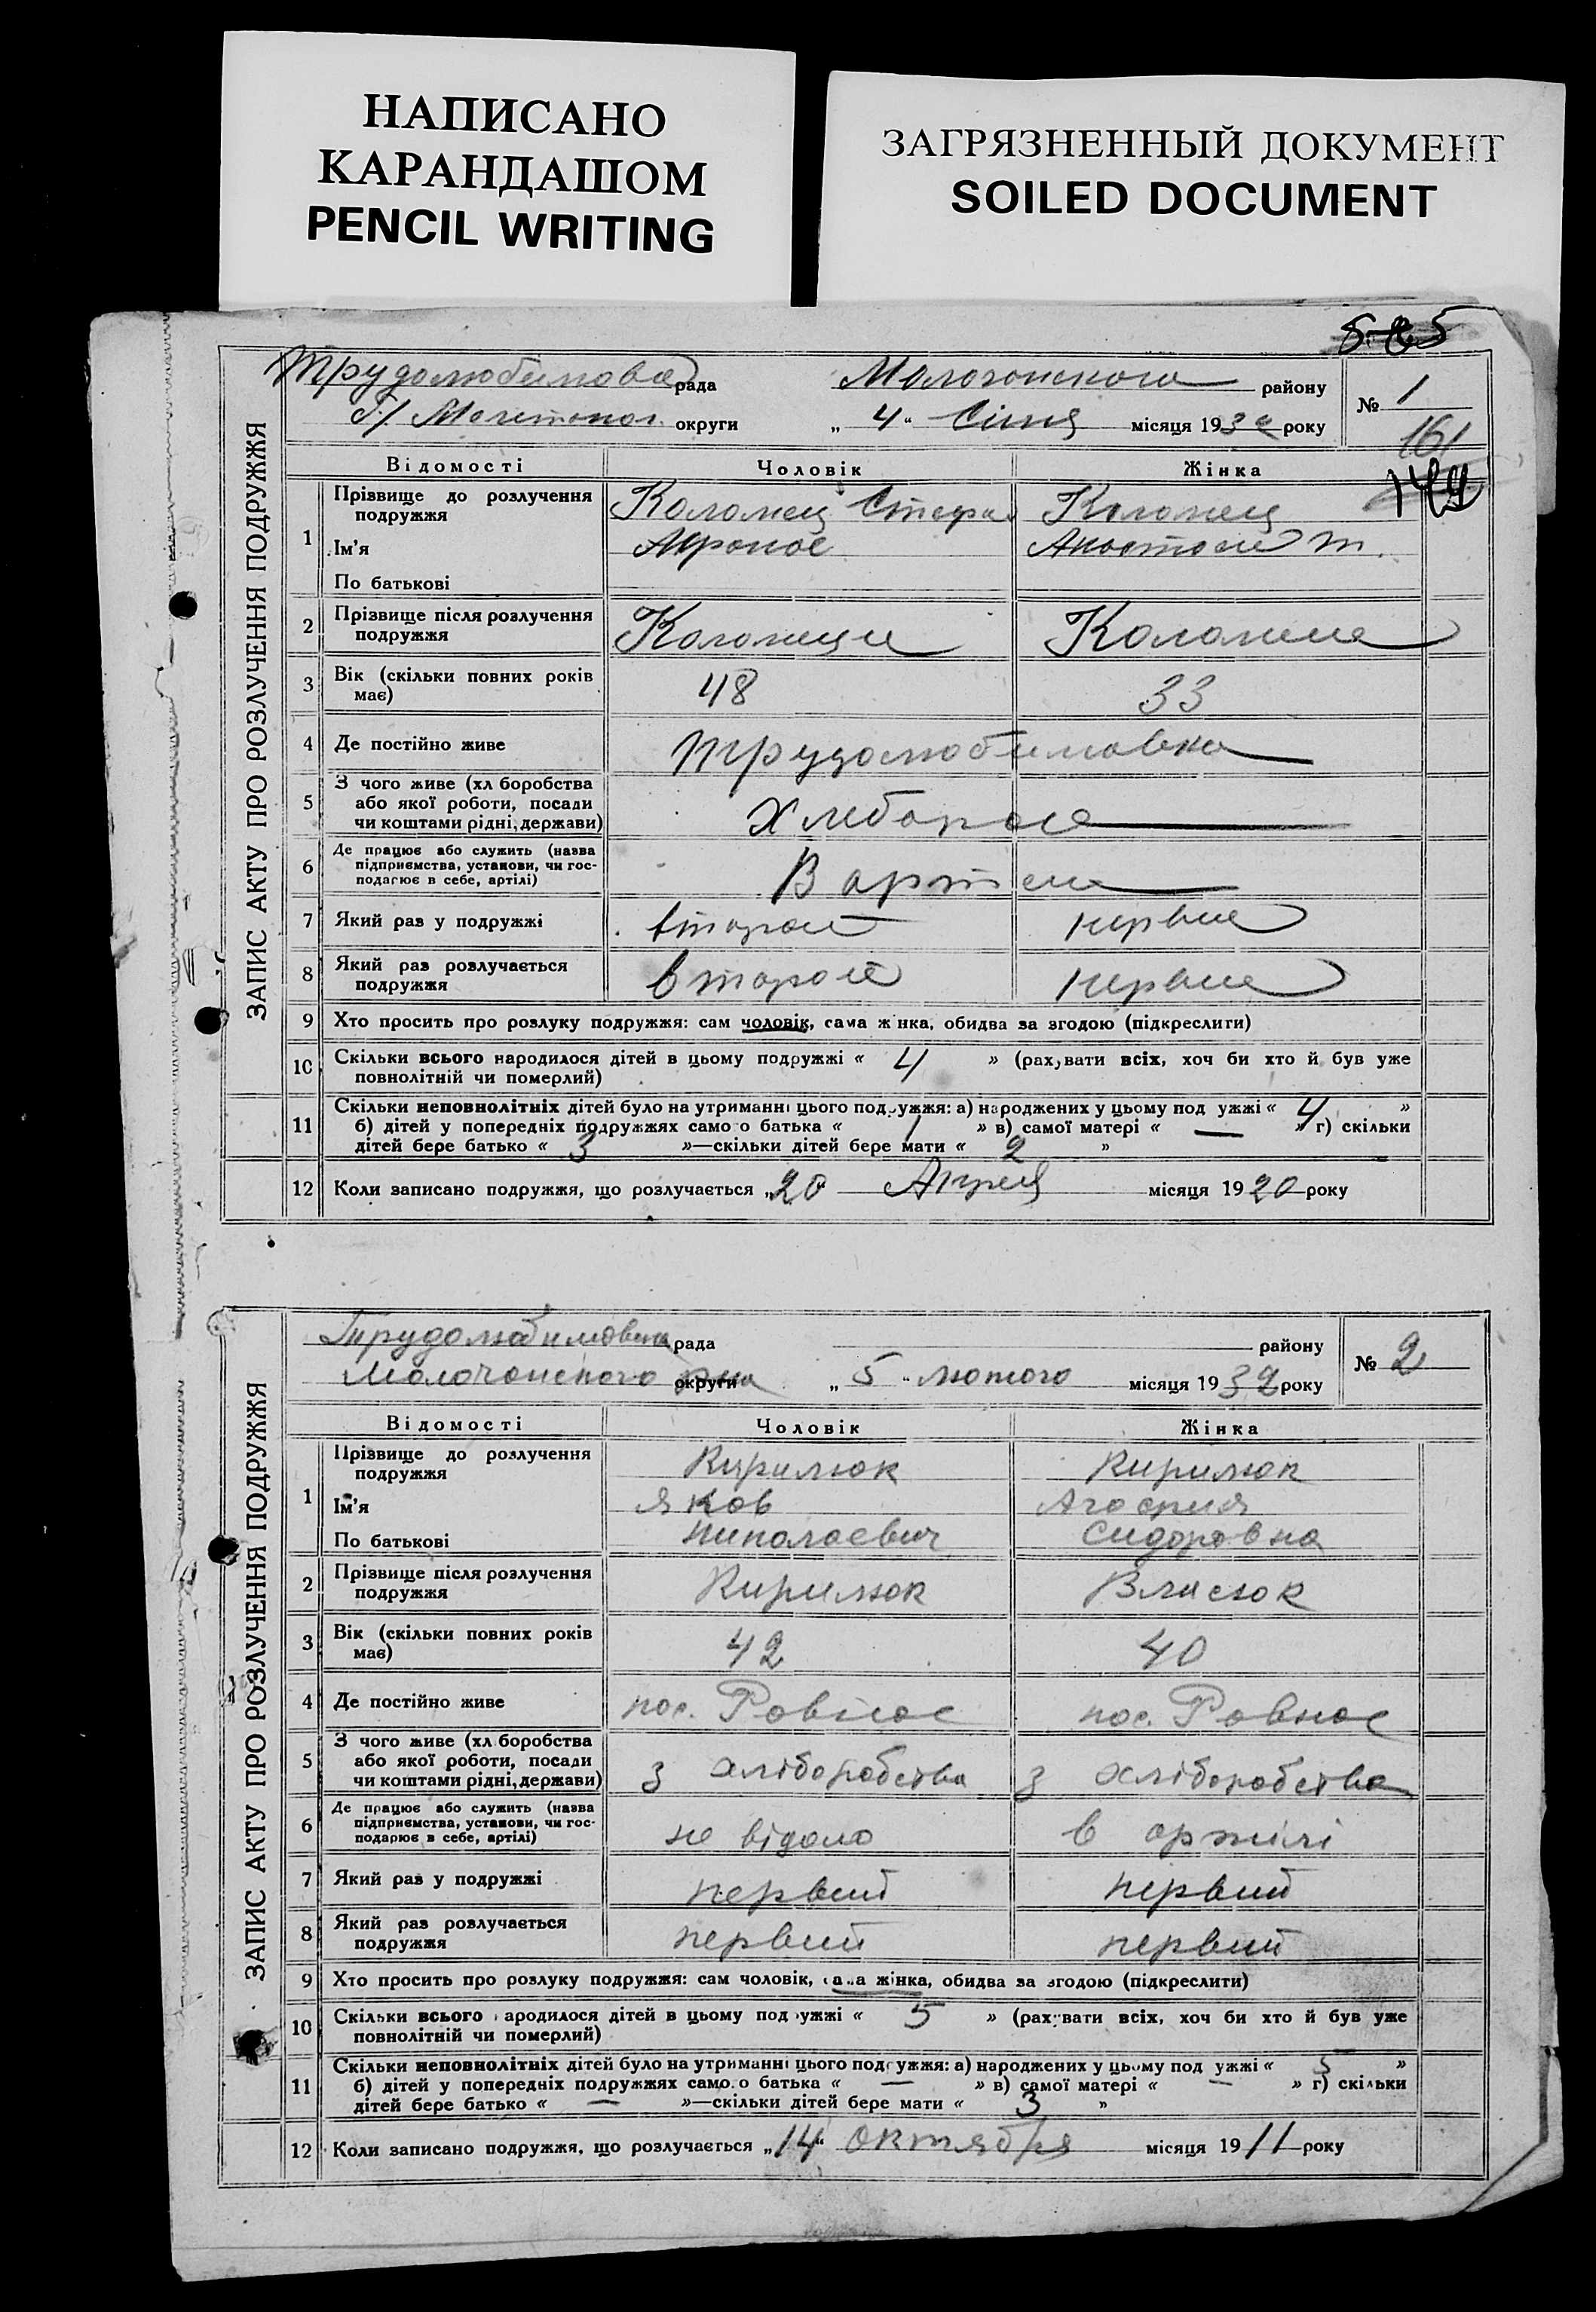 НАПИСАНО
КАРАНДАШОМ
PENCIL WRITING
ЗАГРЯЗНЕННЫЙ ДОКУМЕНТ
SOILED DOCUMENT
ЗАПИС АКТУ ПРО РОЗЛУЧЕННЯ ПОДРУЖЖЯ
рада Молочанского району № 1
округи „ 4 “ Січня місяця 1932 року
161
Відомості Чоловік Жінка
1 Прізвище до розлучення подружжя Коломец Коломец
Ім'я
По батькові
2 Прізвище після розлучення
подружжя
3 Вік (скільки повних років 48 33
має)
4 Де постійно живе Трудолюбимовка
5 З чого живе (хл боробства
або якої роботи, посади
чи коштами рідні, держави)
6 Де працює або служить (назва
підприємства, установи, чи гос-
подарює в себе, артілі) В артели
7 Який раз у подружжі второй
8 Який раз розлучається второй
подружжя
9 Хто просить про розлуку подружжя: сам чоловік, сама жінка, обидва за згодою (підкреслити)
10 Скільки всього народилося дітей в цьому подружжі « 4 » (рахувати всіх, хоч би хто й був уже
повнолітній чи померлий)
11 Скільки неповнолітніх дітей було на утриманні цього подружжя: а) народжених у цьому под ужжі « 4 »
б) дітей у попередніх подружжях само о батька « 1 » в) самої матері « — » г) скільки
дітей бере батько « 3 »—скільки дітей бере мати « 2 »
12 Коли записано подружжя, що розлучається „20“ місяця 1920 року
ЗАПИС АКТУ ПРО РОЗЛУЧЕННЯ ПОДРУЖЖЯ
рада району № 2
Молочанского округи „ 5 “ лютого місяця 1932 року
Відомості Чоловік Жінка
1 Прізвище до розлучення Кирилюк Кирилюк
подружжя
Ім'я Яков Агафия
По батькові Николаевич Сидоровна
2 Прізвище після розлучення Кирилюк Власюк
подружжя
3 Вік (скільки повних років 42 40
має)
4 Де постійно живе пос. Ровное пос. Ровное
5 З чого живе (хл боробства
або якої роботи, посади з хліборобства з хліборобства
чи коштами рідні, держави)
6 Де працює або служить (назва
підприємства, установи, чи гос- не відомо в артілі
подарює в себе, артілі)
7 Який раз у подружжі первий первий
8 Який раз розлучається первий первий
подружжя
9 Хто просить про розлуку подружжя: сам чоловік, сама жінка, обидва за згодою (підкреслити)
10 Скільки всього ародилося дітей в цьому под ужжі « 5 » (рахувати всіх, хоч би хто й був уже
повнолітній чи померлий)
11 Скільки неповнолітніх дітей було на утриманні цього подружжя: а) народжених у цьому под ужжі « 5 »
б) дітей у попередніх подружжях само о батька « — » в) самої матері « — » г) скільки
дітей бере батько « — »—скільки дітей бере мати « 3 »
12 Коли записано подружжя, що розлучається „14“ октября місяця 1911 року